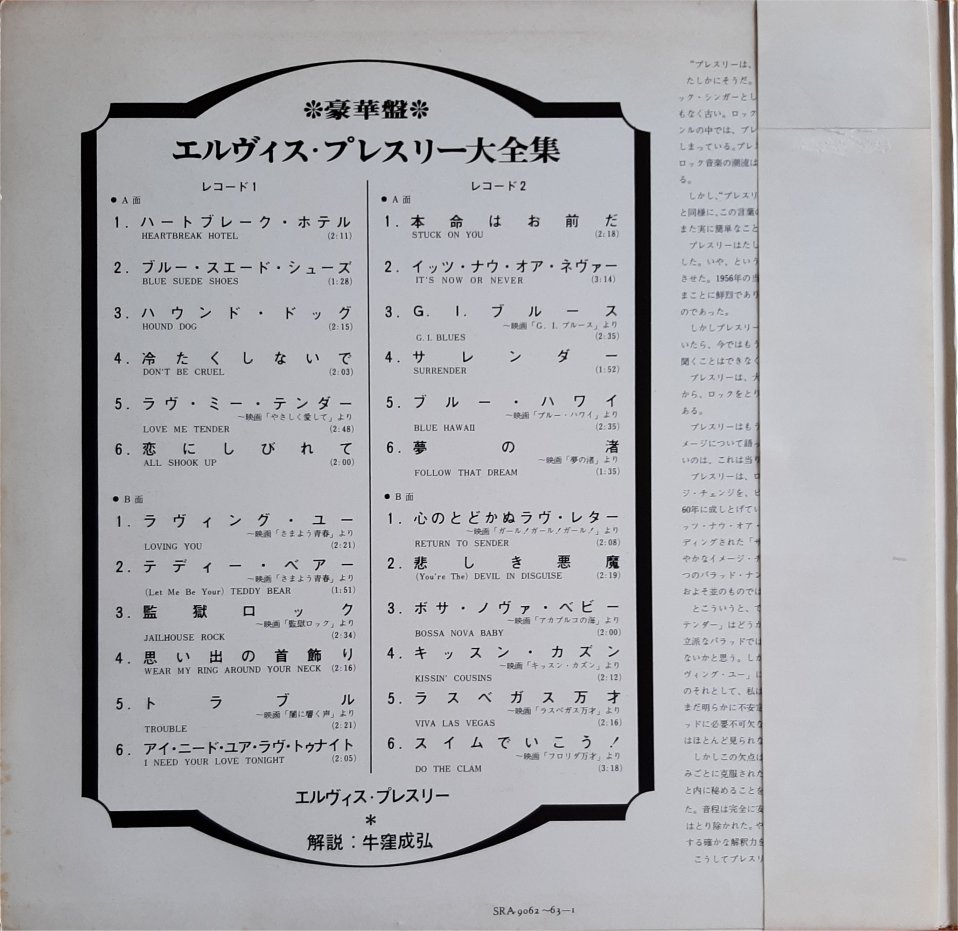 ❇豪華盤❇
エルヴィス・プレスリー大全集
レコード1
●A面
1. ハートブレーク・ホテル
HEARTBREAK HOTEL (2:11)
2. ブルー・スエード・シューズ
BLUE SUEDE SHOES (1:28)
3. ハウンド・ドッグ
HOUND DOG (2:15)
4. 冷たくしないで
DON'T BE CRUEL (2:03)
5. ラヴ・ミー・テンダー
〜映画「やさしく愛して」より
LOVE ME TENDER (2:48)
6. 恋にしびれて
ALL SHOOK UP (2:00)
●B面
1. ラヴィング・ユー
〜映画「さまよう青春」より
LOVING YOU (2:21)
2. テディー・ベアー
〜映画「さまよう青春」より
(Let Me Be Your) TEDDY BEAR (1:51)
3. 監獄ロック
〜映画「監獄ロック」より
JAILHOUSE ROCK (2:34)
4. 思い出の首飾り
WEAR MY RING AROUND YOUR NECK (2:16)
5. トラブル
〜映画「闇に響く声」より
TROUBLE (2:21)
6. アイ・ニード・ユア・ラヴ・トゥナイト
I NEED YOUR LOVE TONIGHT (2:05)
レコード2
●A面
1. 本命はお前だ
STUCK ON YOU (2:18)
2. イッツ・ナウ・オア・ネヴァー
IT'S NOW OR NEVER (3:14)
3. G. I. ブルース
〜映画「G. I. ブルース」より
G. I. BLUES (2:35)
4. サレンダー
SURRENDER (1:52)
5. ブルー・ハワイ
〜映画「ブルー・ハワイ」より
BLUE HAWAII (2:35)
6. 夢の渚
〜映画「夢の渚」より
FOLLOW THAT DREAM (1:35)
●B面
1. 心のとどかぬラヴ・レター
〜映画「ガール！ガール！ガール！」より
RETURN TO SENDER (2:08)
2. 悲しき悪魔
(You're The) DEVIL IN DISGUISE (2:19)
3. ボサ・ノヴァ・ベビー
〜映画「アカプルコの海」より
BOSSA NOVA BABY (2:00)
4. キッスン・カズン
〜映画「キッスン・カズン」より
KISSIN' COUSINS (2:12)
5. ラスベガス万才
〜映画「ラスベガス万才」より
VIVA LAS VEGAS (2:16)
6. スイムでいこう！
〜映画「フロリダ万才」より
DO THE CLAM (3:18)
エルヴィス・プレスリー
*
解説：牛窪成弘
SRA-9062〜63-1
"プレスリーは、
たしかにそうだ。
ック・シンガーとし
もなく古い。ロック
ンルの中では、プレ
しまっている。プレ
ロック音楽の潮流は
る。
しかし、"プレスリ
と同様に、この言葉
また実に簡単なこと
プレスリーはたし
した。いや、という
させた。1956年の当
まことに鮮烈であり
のであった。
しかしプレスリー
いたら、今ではもう
聞くことはできなく
プレスリーは、
から、ロックをとり
ある。
プレスリーはもう
メージについて語
いのは、これは当り
プレスリーは、ロ
ジ・チェンジを、ビ
60年に成しとげてい
ッツ・ナウ・オア・
ディングされた「サ
やかなイメージ・
つのバラッド・ナン
およそ並のものでは
とこういうと、で
テンダー」はどうか
立派なバラッドでは
ないかと思う。しか
ヴィング・ユー」
のそれとして、私は
まだ明らかに不安定
ッドに必要不可欠な
はほとんど見られな
しかしこの欠点は
みごとに克服された
と内に秘めることを
た。音程は完全に安
はとり除かれた。や
する確かな解釈力を
こうしてプレスリ